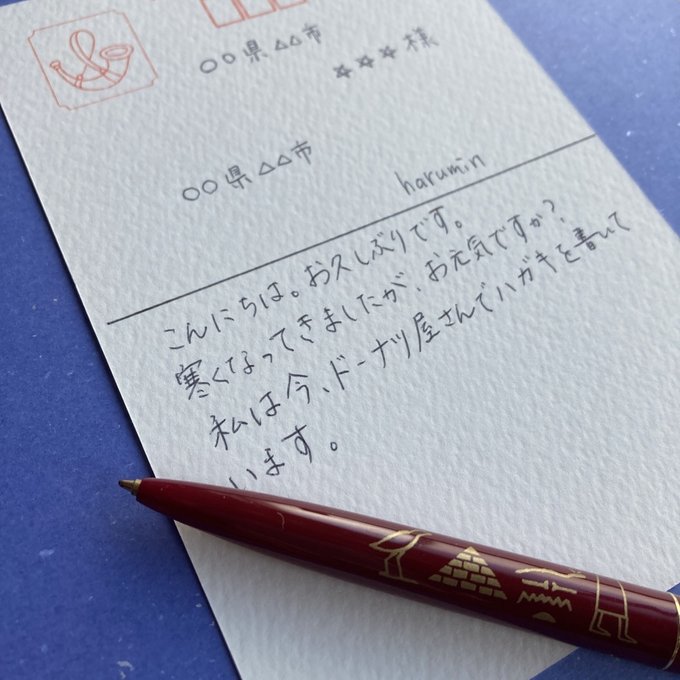 〇〇県△△市
☆☆☆様
〇〇県△△市
harumin
こんにちは。お久しぶりです。
寒くなってきましたが、お元気ですか?
私は今、ドーナツ屋さんでハガキを書いて
います。